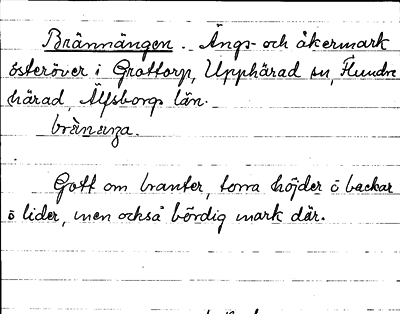 Brännängen. Ängs- och åkermark
österöver i Grattorp, Upphärad sn, Flundre
härad, Älfsborgs län.
brànæŋa.
Gott om branter, torra höjder o backar
o lider, men också bördig mark där.